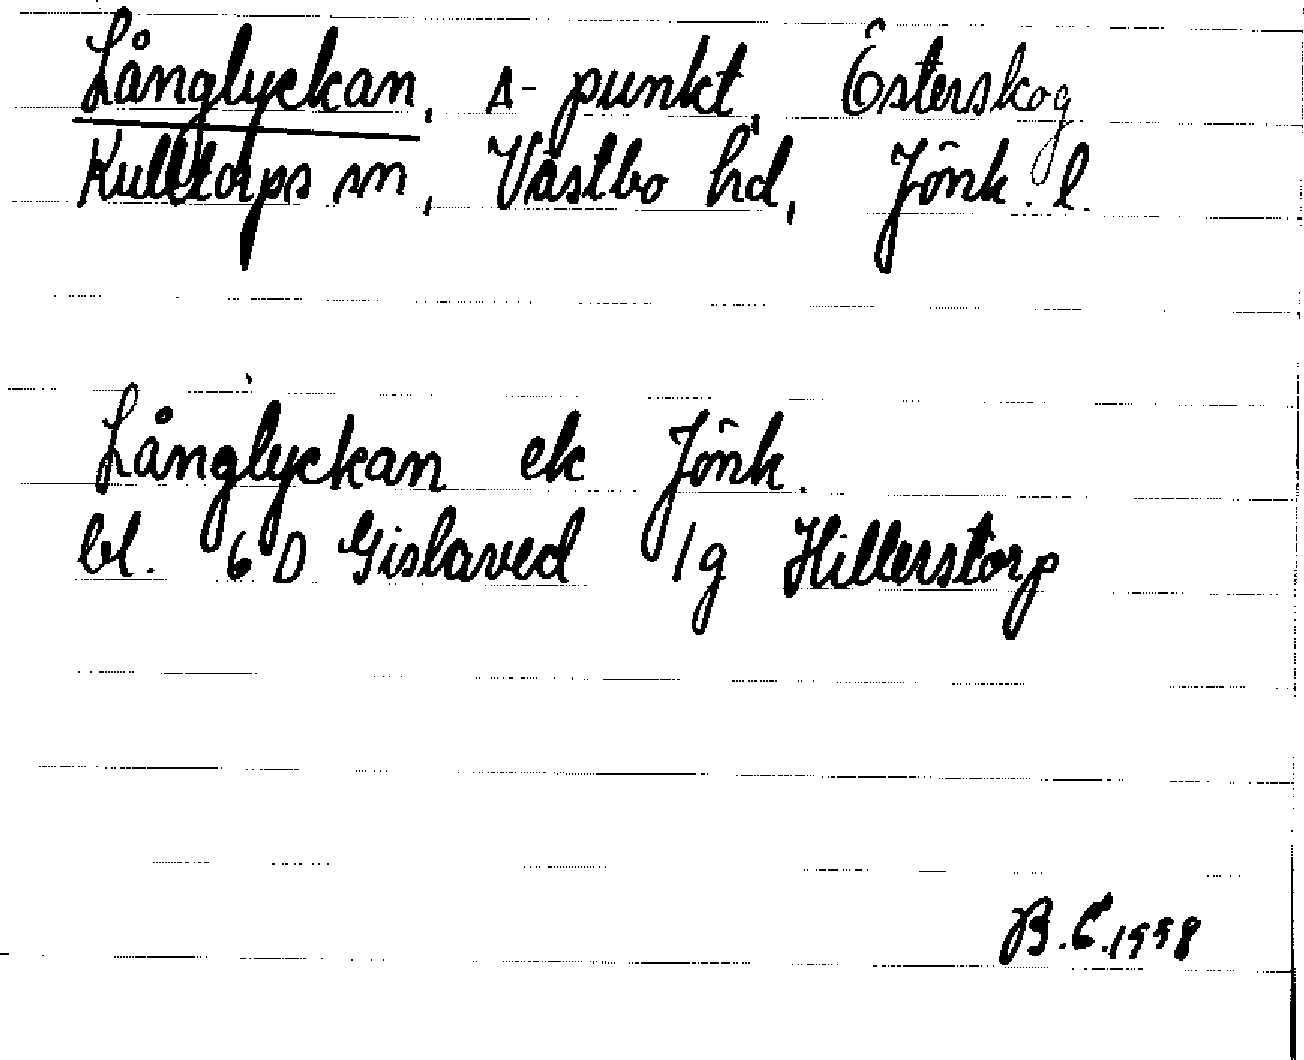 Långlyckan, Δ-punkt, Österskog
Kulltorps sn, Västbo hd, Jönk. l.
Långlyckan ek Jönk.
bl. 6 D Gislaved 1g Hillerstorp
B.E. 1958